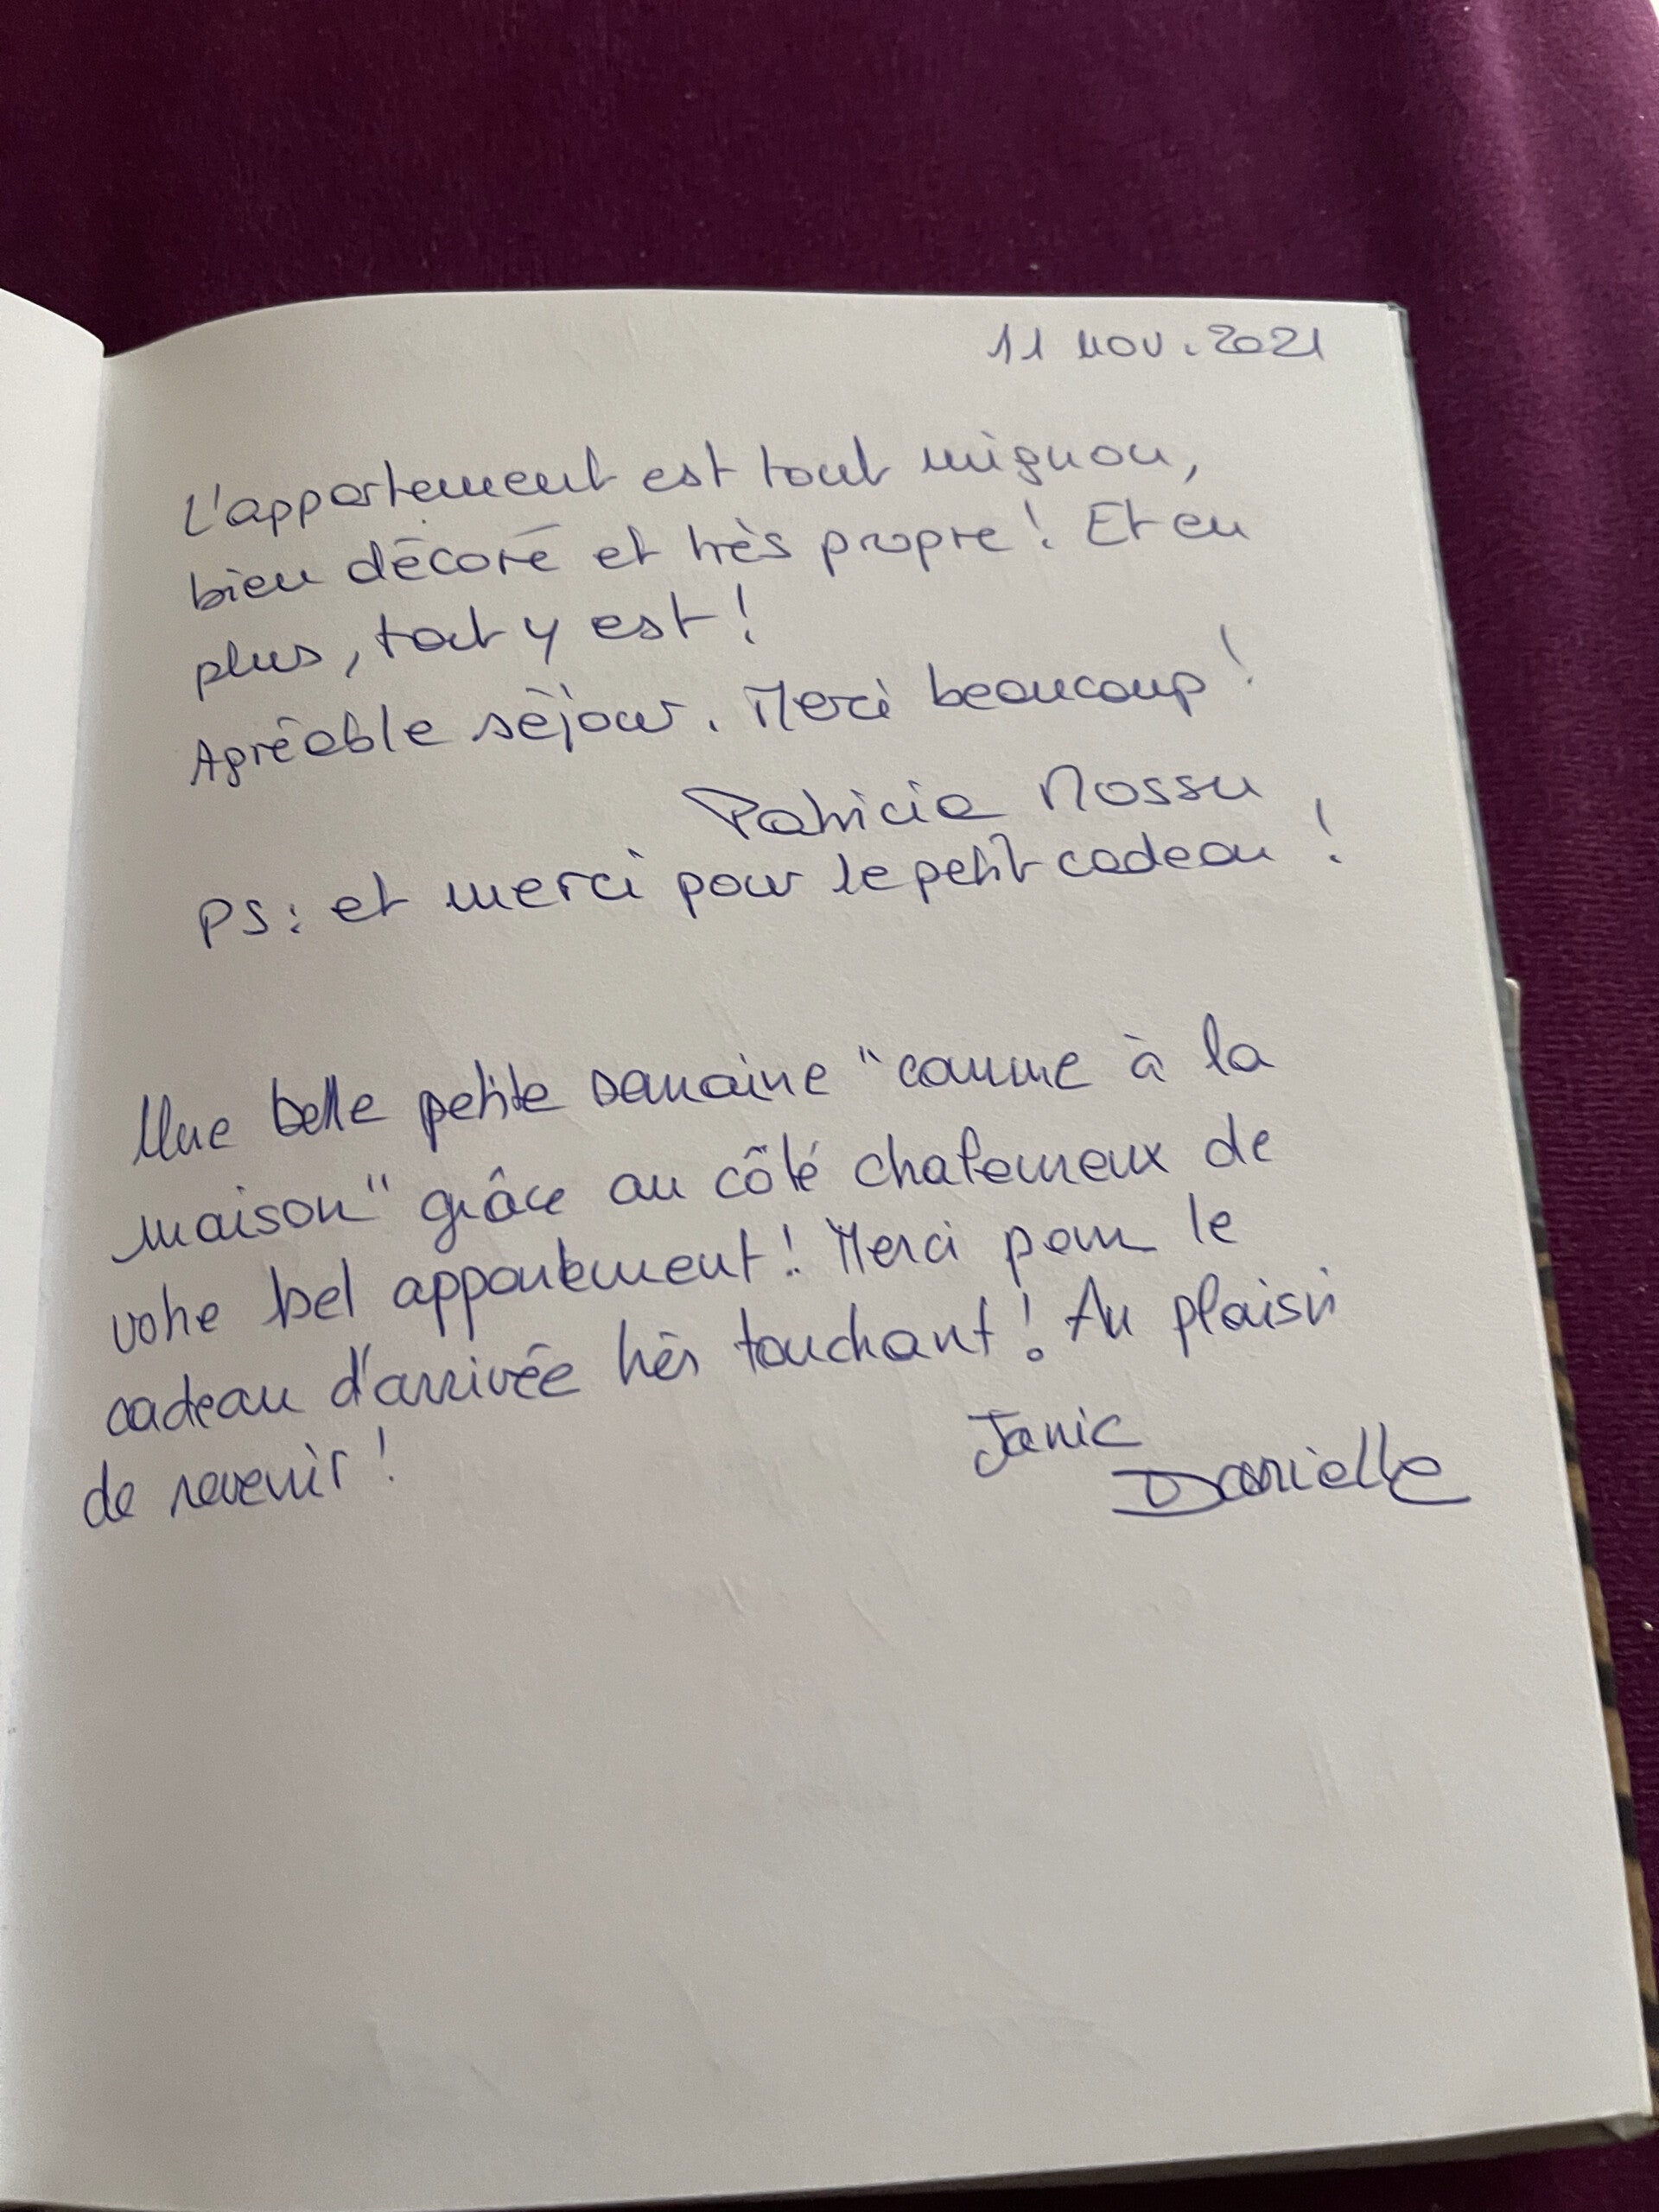 11 nov. 2021
L'appartement est tout mignon,
bien décoré et très propre ! Et en
plus, tout y est !
Agréable séjour. Merci beaucoup !
Patricia Mossu
PS : et merci pour le petit cadeau !
Une belle petite semaine "comme à la
maison" grâce au côté chaleureux de
votre bel appartement ! Merci pour le
cadeau d'arrivée très touchant ! Au plaisir
de revenir !
Janic
Danielle